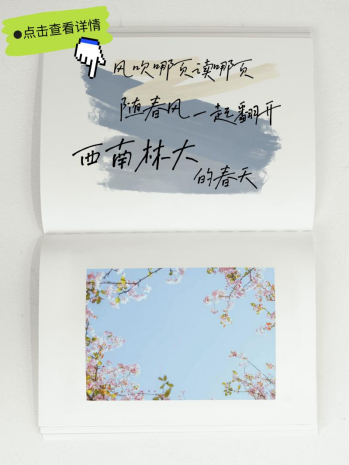 ●点击查看详情
风吹哪页读哪页
随春风一起翻开
西南林大
的春天